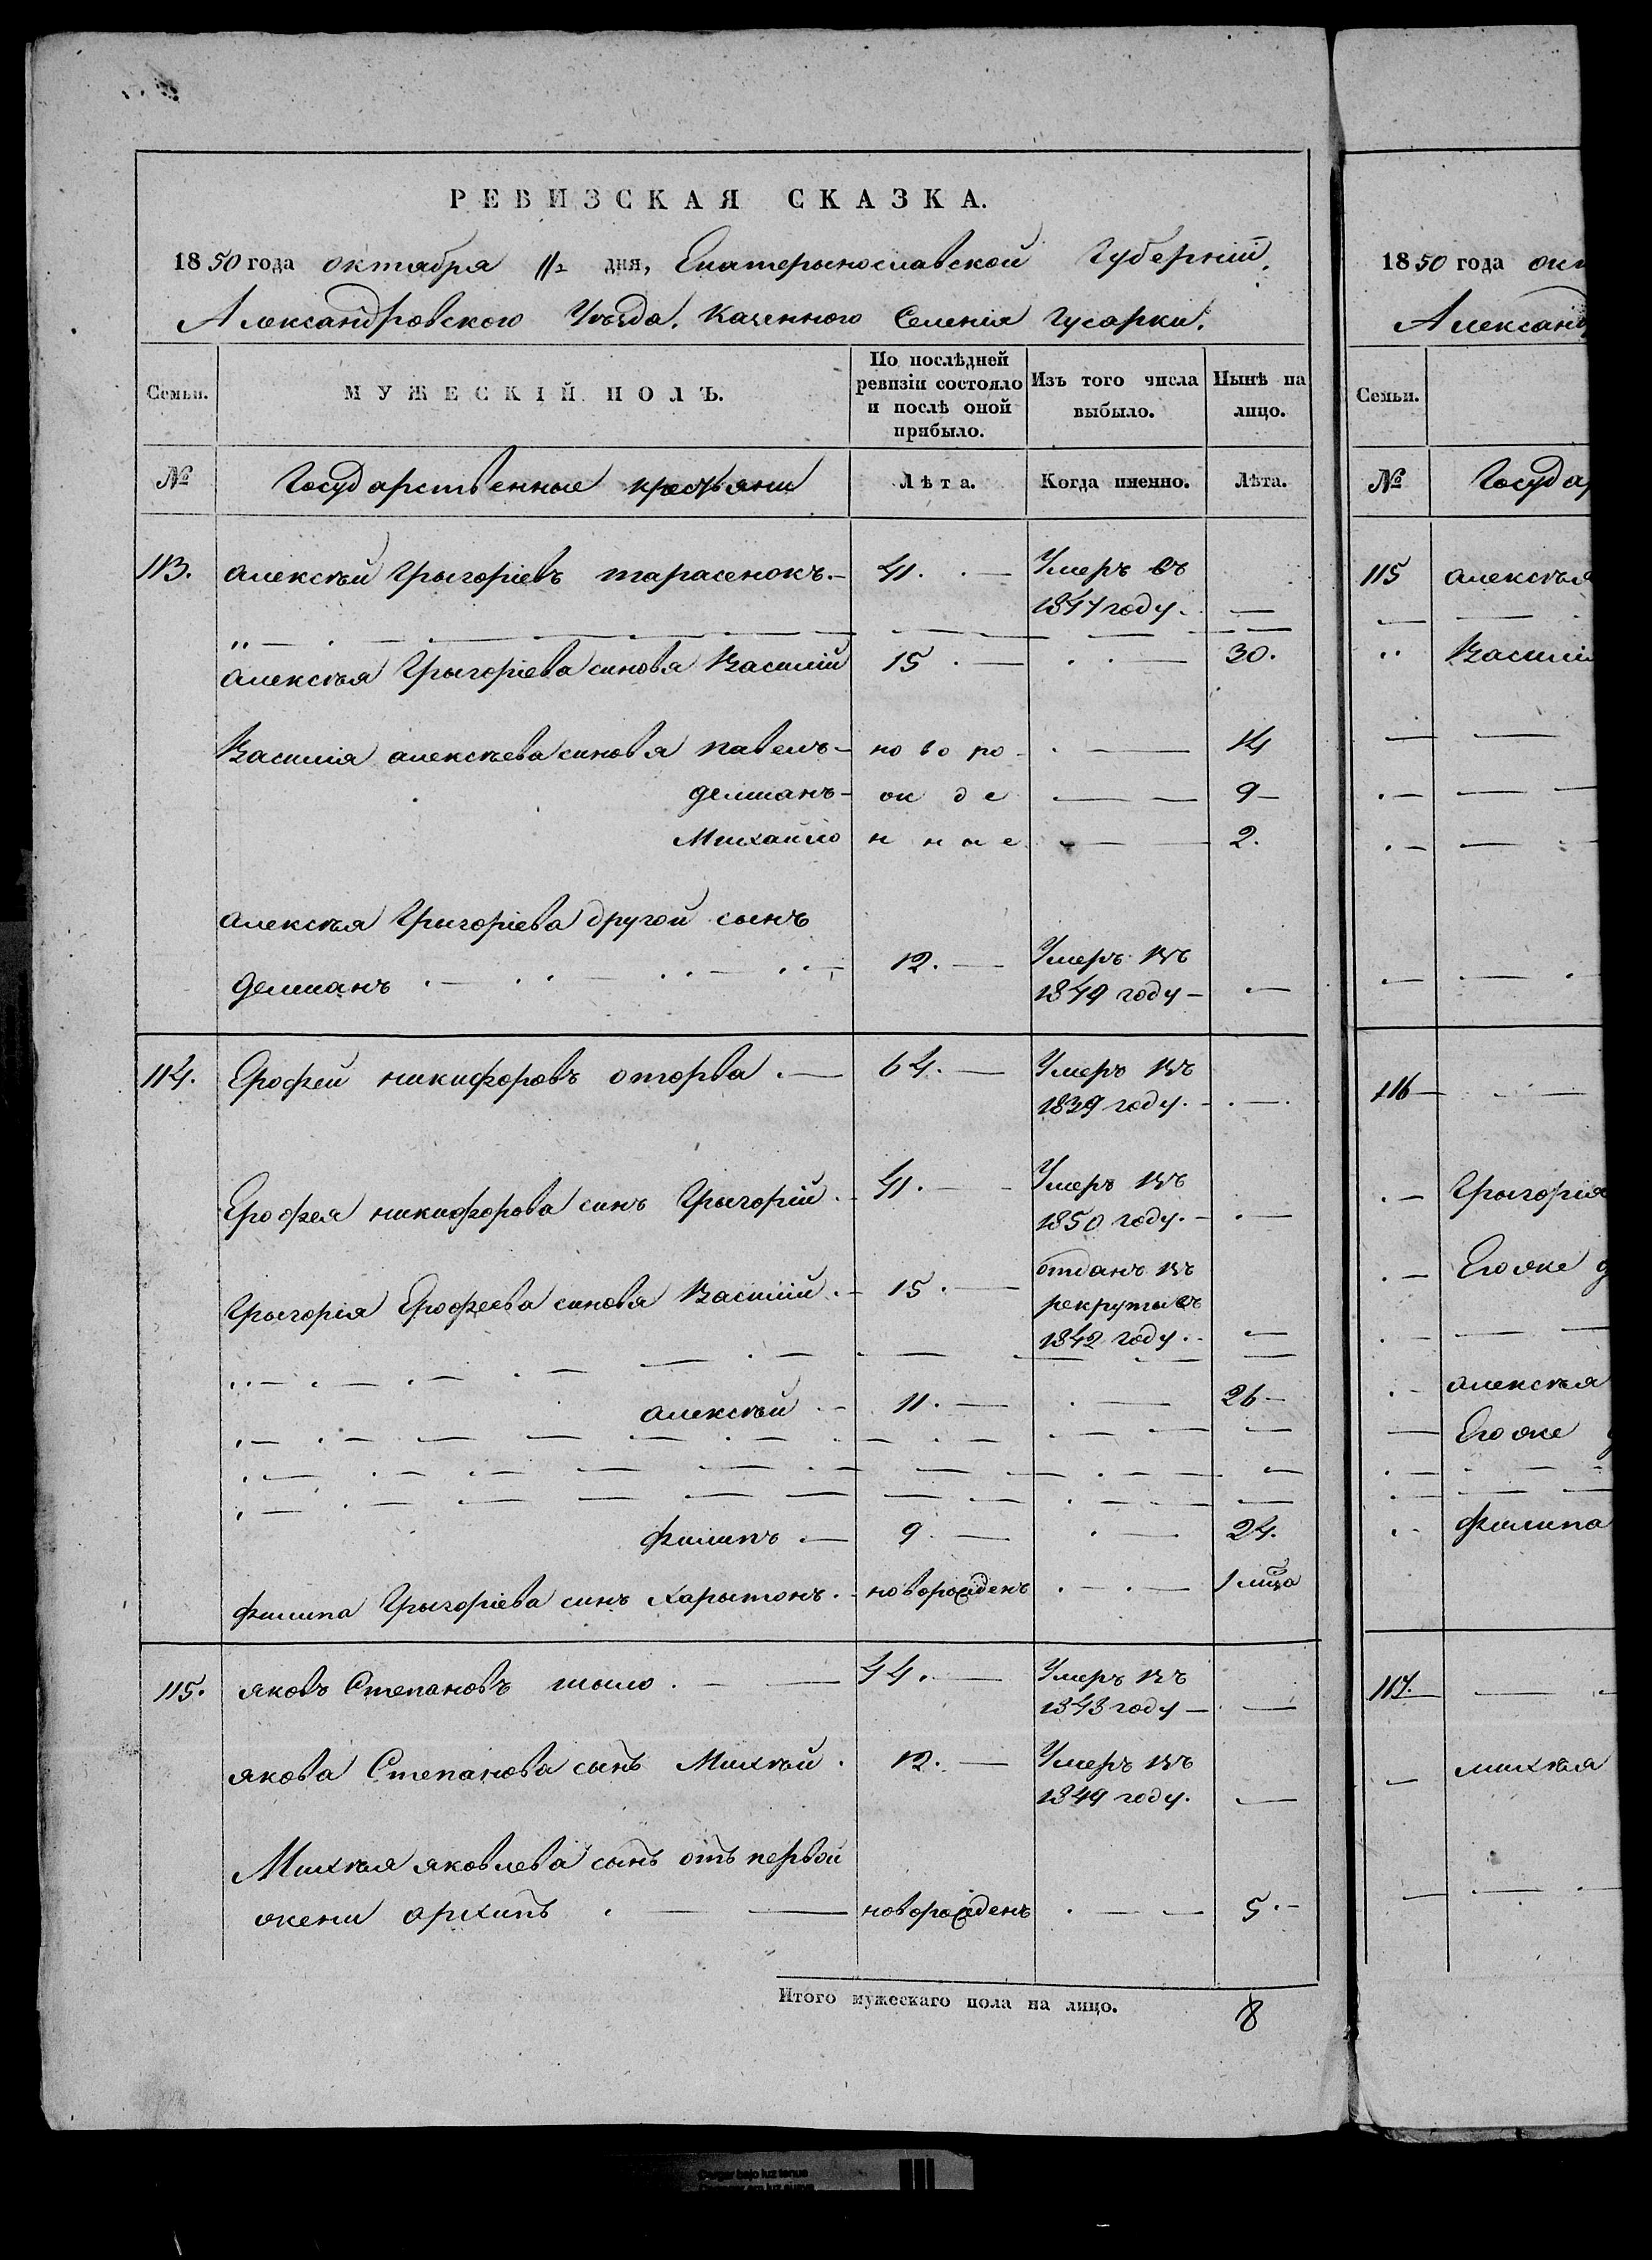 РЕВИЗСКАЯ СКАЗКА.
1850 года октября 11/2 дня, Екатерынославской Губерніи,
Александровского Уезда. Казенного Селенія Гусарки.
Семьи. МУЖЕСКІЙ ПОЛЪ. По послѣдней ревизіи состояло и послѣ оной прибыло. Изъ того числа выбыло. Нынѣ на лицо.
№ Государственные крестьяни Лѣта. Когда именно. Лѣта.
113. Алексѣй Грыгоріевъ тарасенокъ. 41. Умеръ въ
1847 году.
Алексѣя Грыгоріева синовя Василій 15 30.
Василія алексѣева синовя павелъ ново ро 14
демианъ ж д е 9
Михайло н н ы е 2.
Алексѣя Грыгоріева другой сынъ
Демианъ 12. Умеръ въ
1849 году
114. Ерофей никифоровъ оторва 64. Умеръ въ
1839 году.
Ерофея никифорова синъ Грыгорій 41. Умеръ въ
1850 году.
Грыгорія Ерофеева синовя Василій 15. отданъ въ
рекруты въ
1842 году.
алексѣй 11. 26
филипъ 9. 24.
филипа Грыгоріева синъ Харытонъ. новорожденъ 1 мѣца
115. яковъ Степановъ шыло 44. Умеръ въ
1843 году
якова Степанова сынъ Михѣй 12. Умеръ въ
1849 году.
Михѣя яковлева сынъ отъ первой
жени архипъ новорожденъ 5.
Итого мужескаго пола на лицо. 8
1850 года окт
Александ
Семьи.
№ Государ
115 алексѣя
Василія
116
Грыгорія
Его же д
алексѣя
Его же
филипа
117.
михѣя